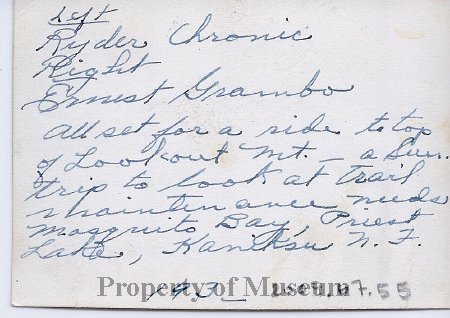 Left
Ryder Chronic
Right
Ernest Grambo
All set for a ride to top
of Lookout Mt. — a Sum.
trip to look at trail
maintenance needs
Mosquito Bay, Priest
Lake, Kaniksu N. F.
Property of Museum
1943 .17.55